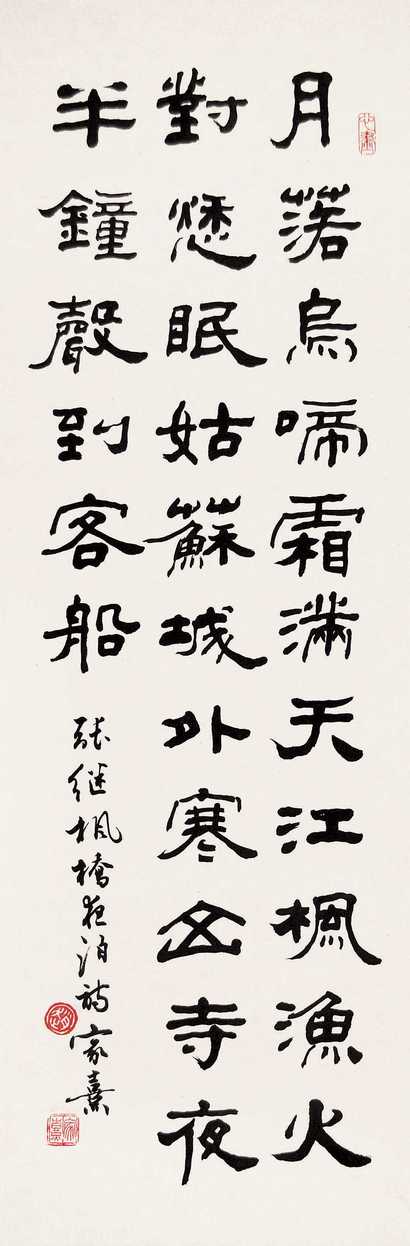 月落烏啼霜滿天江楓漁火
對愁眠姑蘇城外寒山寺夜
半鐘聲到客船
张继枫橋夜泊詩 家熹